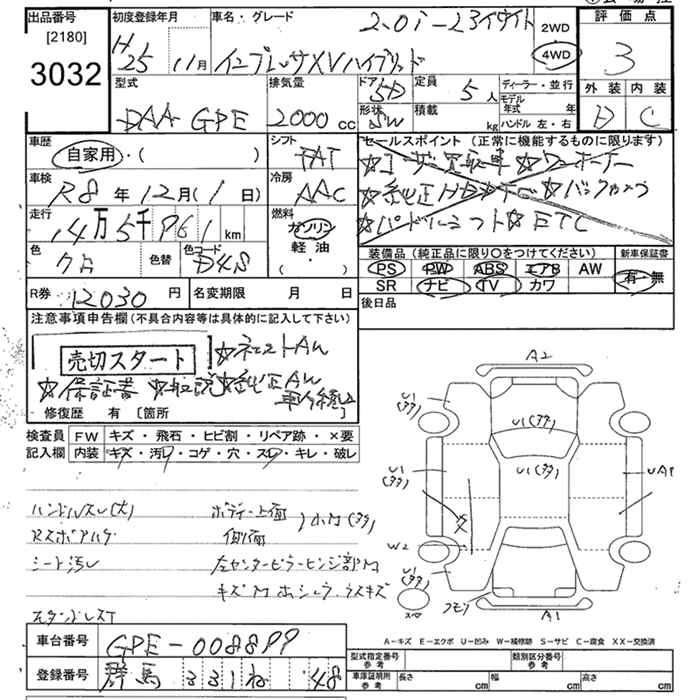 出品番号
[2180]
3032
初度登録年月
H25 11月
車名・グレード
2.0i-L
インプレッサXVハイブリッド
2WD
4WD
評価点
3
型式
DAA GPE
排気量
2000 cc
ドア
5D
形状
SW
定員
5人
積載
kg
ディーラー・並行
モデル年式 年
ハンドル 左・右
外装 内装
D C
車歴
自家用・( )
シフト
FAT
セールスポイント (正常に機能するものに限ります)
☆純正HDDナビ☆バックカメラ
☆パドルシフト☆ETC
車検
R8年12月(1日)
冷房
AAC
走行
14万5千961 km
燃料
ガソリン
軽油
( ・ )
色
クロ
色替
色コード
D4S
装備品 (純正品に限り○をつけてください)
PS PW ABS エアB AW
SR ナビ TV カワ
新車保証書
有・無
R券 12030 円
名変期限 月 日
後日品
注意事項申告欄 (不具合内容等は具体的に記入して下さい)
売切スタート
☆保証書 ☆取説 ☆純正AW
修復歴 有 [箇所 ]
検査員記入欄
FW キズ・飛石・ヒビ割・リペア跡・×要
内装 キズ・汚レ・コゲ・穴・スレ・キレ・破レ
ハンドルスレ(大)
シート汚レ
ボディー上面
側面
左センターピラーヒンジ部
A2
U1(多)
U1(多)
U1(多)
U1(多)
UA1
W2
U1(多)
A1
A-キズ E-エクボ U-凹み W-補修跡 S-サビ C-腐食 XX-交換済
車台番号
GPE-008899
登録番号
群馬 331 ね 48
型式指定番号 参考
類別区分番号 参考
車庫証明所 参考
長さ cm
幅 cm
高さ cm